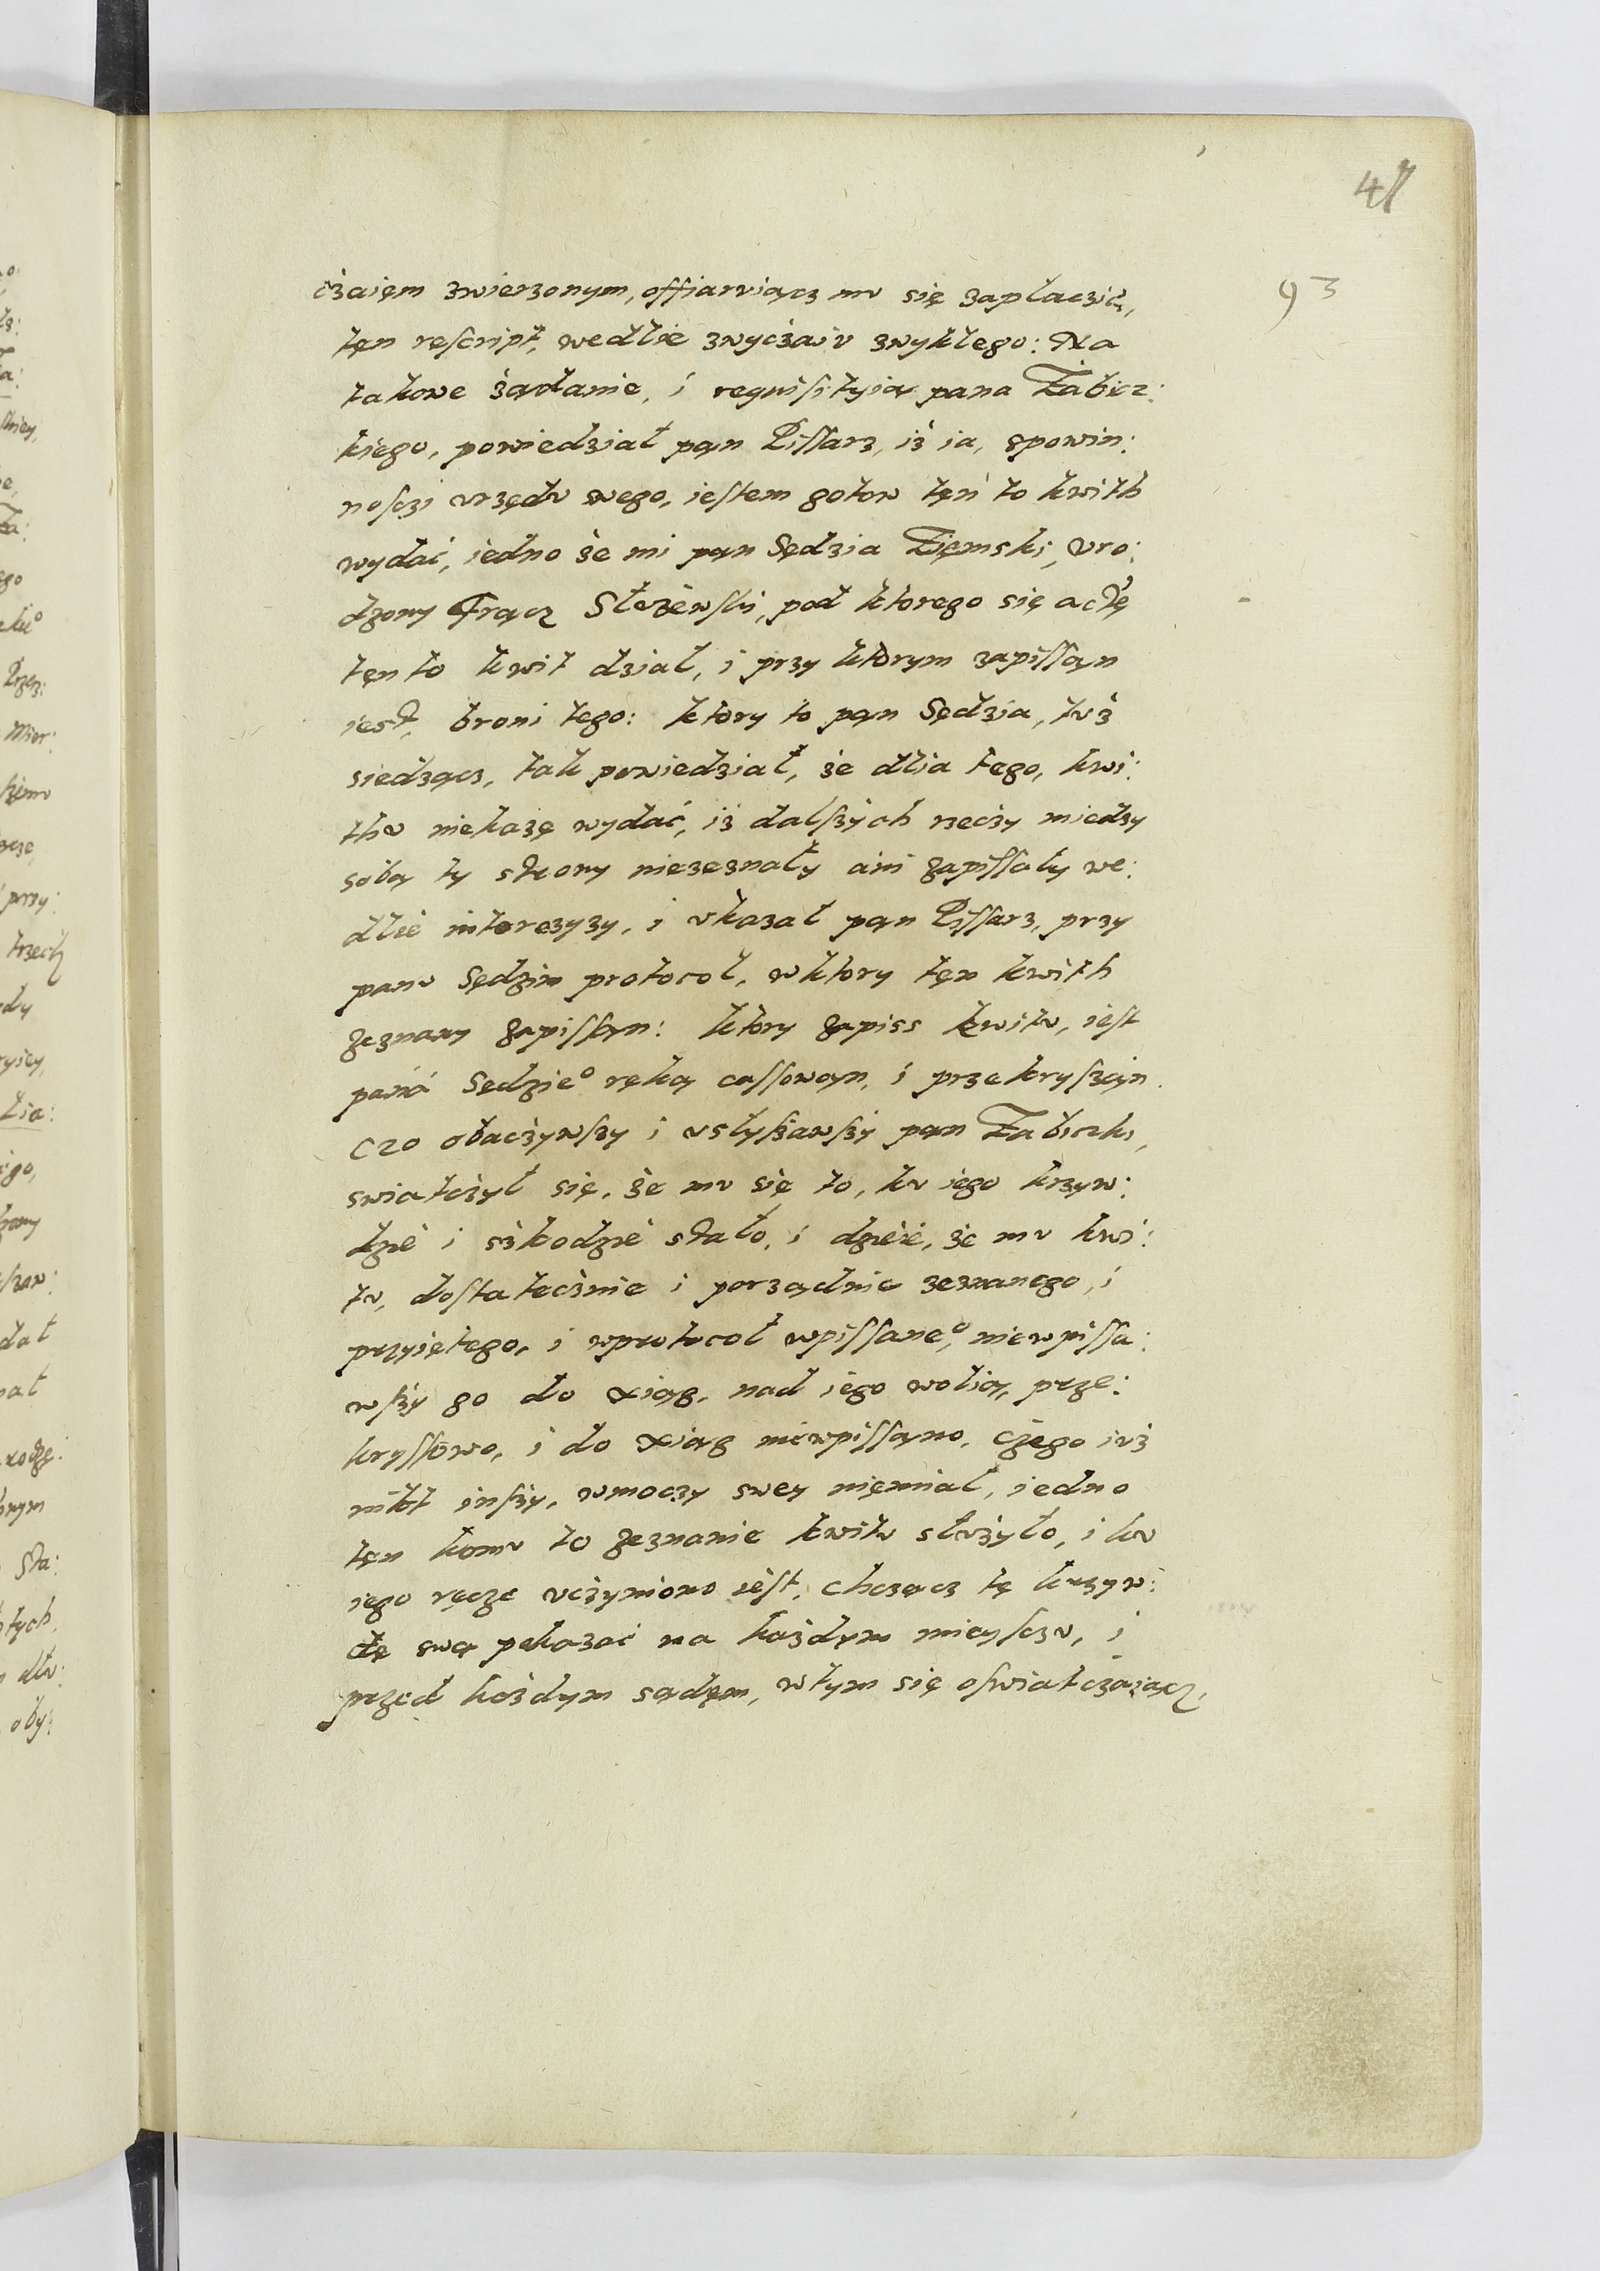 47
93
cżaięm zwierzonym, offiaruiącz mu się zapłaczić,
tęn rescript, wedlie zwyczaiu zwykłego: Na
takowe żądanie, i requisityią pana Zabicz:
kiego, powiedział pąn Pissarz, iż ia, spowin:
noſczi vrzędu swego, iestem gotow tęń to kwith
wydać, iedno że mi pąn Sędzia Zięmski, Vro:
dzony Frącz Słeżewski, pod ktorego się actę
tęn to kwit dział, i przy ktorym zapissąn
iest, broni tego: ktory to pąn Sędzia, tuż
siedzącz, tak powiedział, że dlia tego, kwi:
thu niekażę wydać, iż dalſzych rzeczy miedzy
sobą ty strony niezeznały ani zapissały we:
dlie intercyzy, i vkazał pąn Pissarz, przy
panu Sędzim protocoł, w ktory tęn kwith
zeznany zapissąn: ktory zapiss kwitu, iest
pana Sędzie° ręką cassowąn, i przekrysząn.
czo obaczywſzy i vslyſzawſzy pąn Zabiczki,
swiatczył się, że mu się to, ku iego krzyw:
dzie i szkodzie stało, i dzieie, że mu kwi:
tu, dostatecznie i porządnie zeznanego, i
przyiętego, i wprotocoł wpissane°, niewpissa:
wſzy go do xiąg, nad iego wolią, prze:
kryssowo, i do xiąg niewpissąno, czego iuż
nikt inſzy, wmoczy swey nięmiał, iedno
tęn komu to zeznanie kwitu służyło, i ku
iego ręcze vczyniono iest, chcząc tę krzyw:
dę swą pokazać na każdym mieysczu, i
przed każdym sądęm, wtym się oswiatczaiącz,